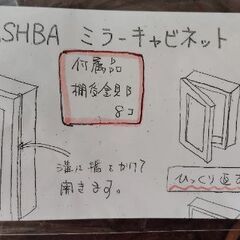 ASHBA ミラーキャビネット
付属品
棚傍金具B
8コ
溝に指をかけ?
開きます。
ひっくり返す